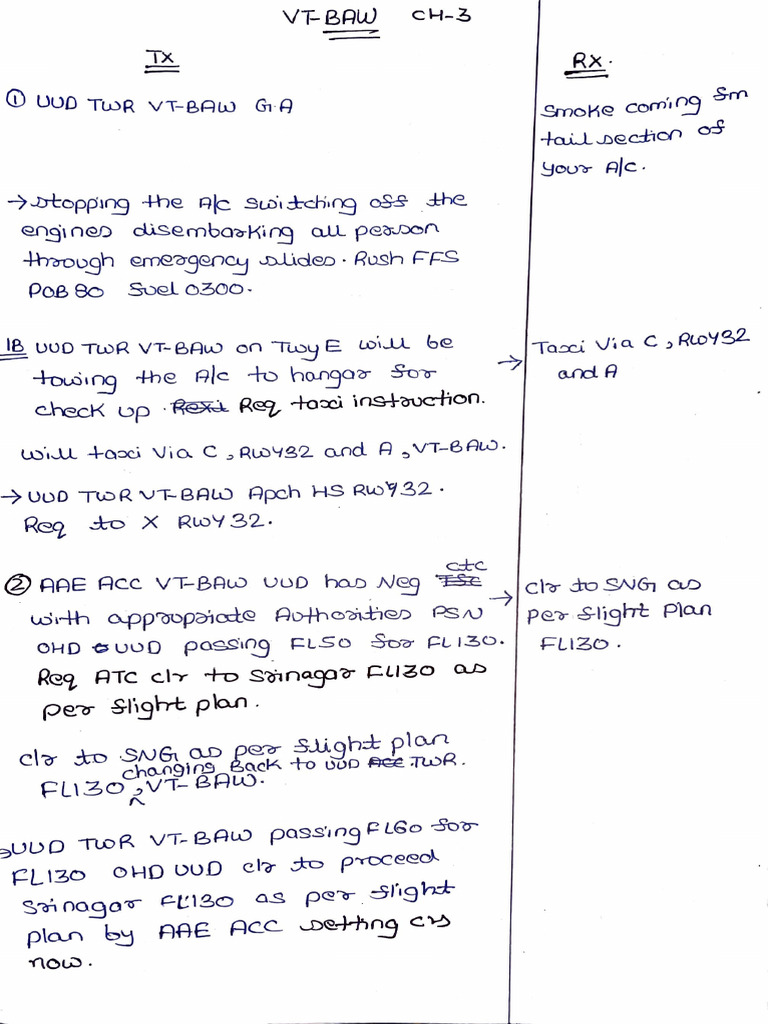 VT-BAW CH-3
TX
RX.
① UUD TWR VT-BAW G.A
Smoke coming fm
tail section of
your A/c.
→ stopping the A/c switching off the
engines disembarking all person
through emergency slides. Rush FFS
POB 80 fuel 0300.
1B UUD TWR VT-BAW on Twy E will be
towing the A/c to hangar for
check up. Req taxi instruction.
→ Taxi Via C, RWY32
and A
will taxi Via C, RWY32 and A, VT-BAW.
→ UUD TWR VT-BAW Apch HS RWY32.
Req to X RWY 32.
② AAE ACC VT-BAW UUD has Neg ctc
with appropriate Authorities PSN
OHD UUD passing FL50 for FL130.
Req ATC clr to Srinagar FL130 as
per flight plan.
→ clr to SNG as
per flight Plan
FL130.
clr to SNG as per flight plan
FL130, changing Back to UUD TWR. VT-BAW.
→ UUD TWR VT-BAW passing FL60 for
FL130 OHD UUD clr to proceed
Srinagar FL130 as per flight
plan by AAE ACC setting crs
now.